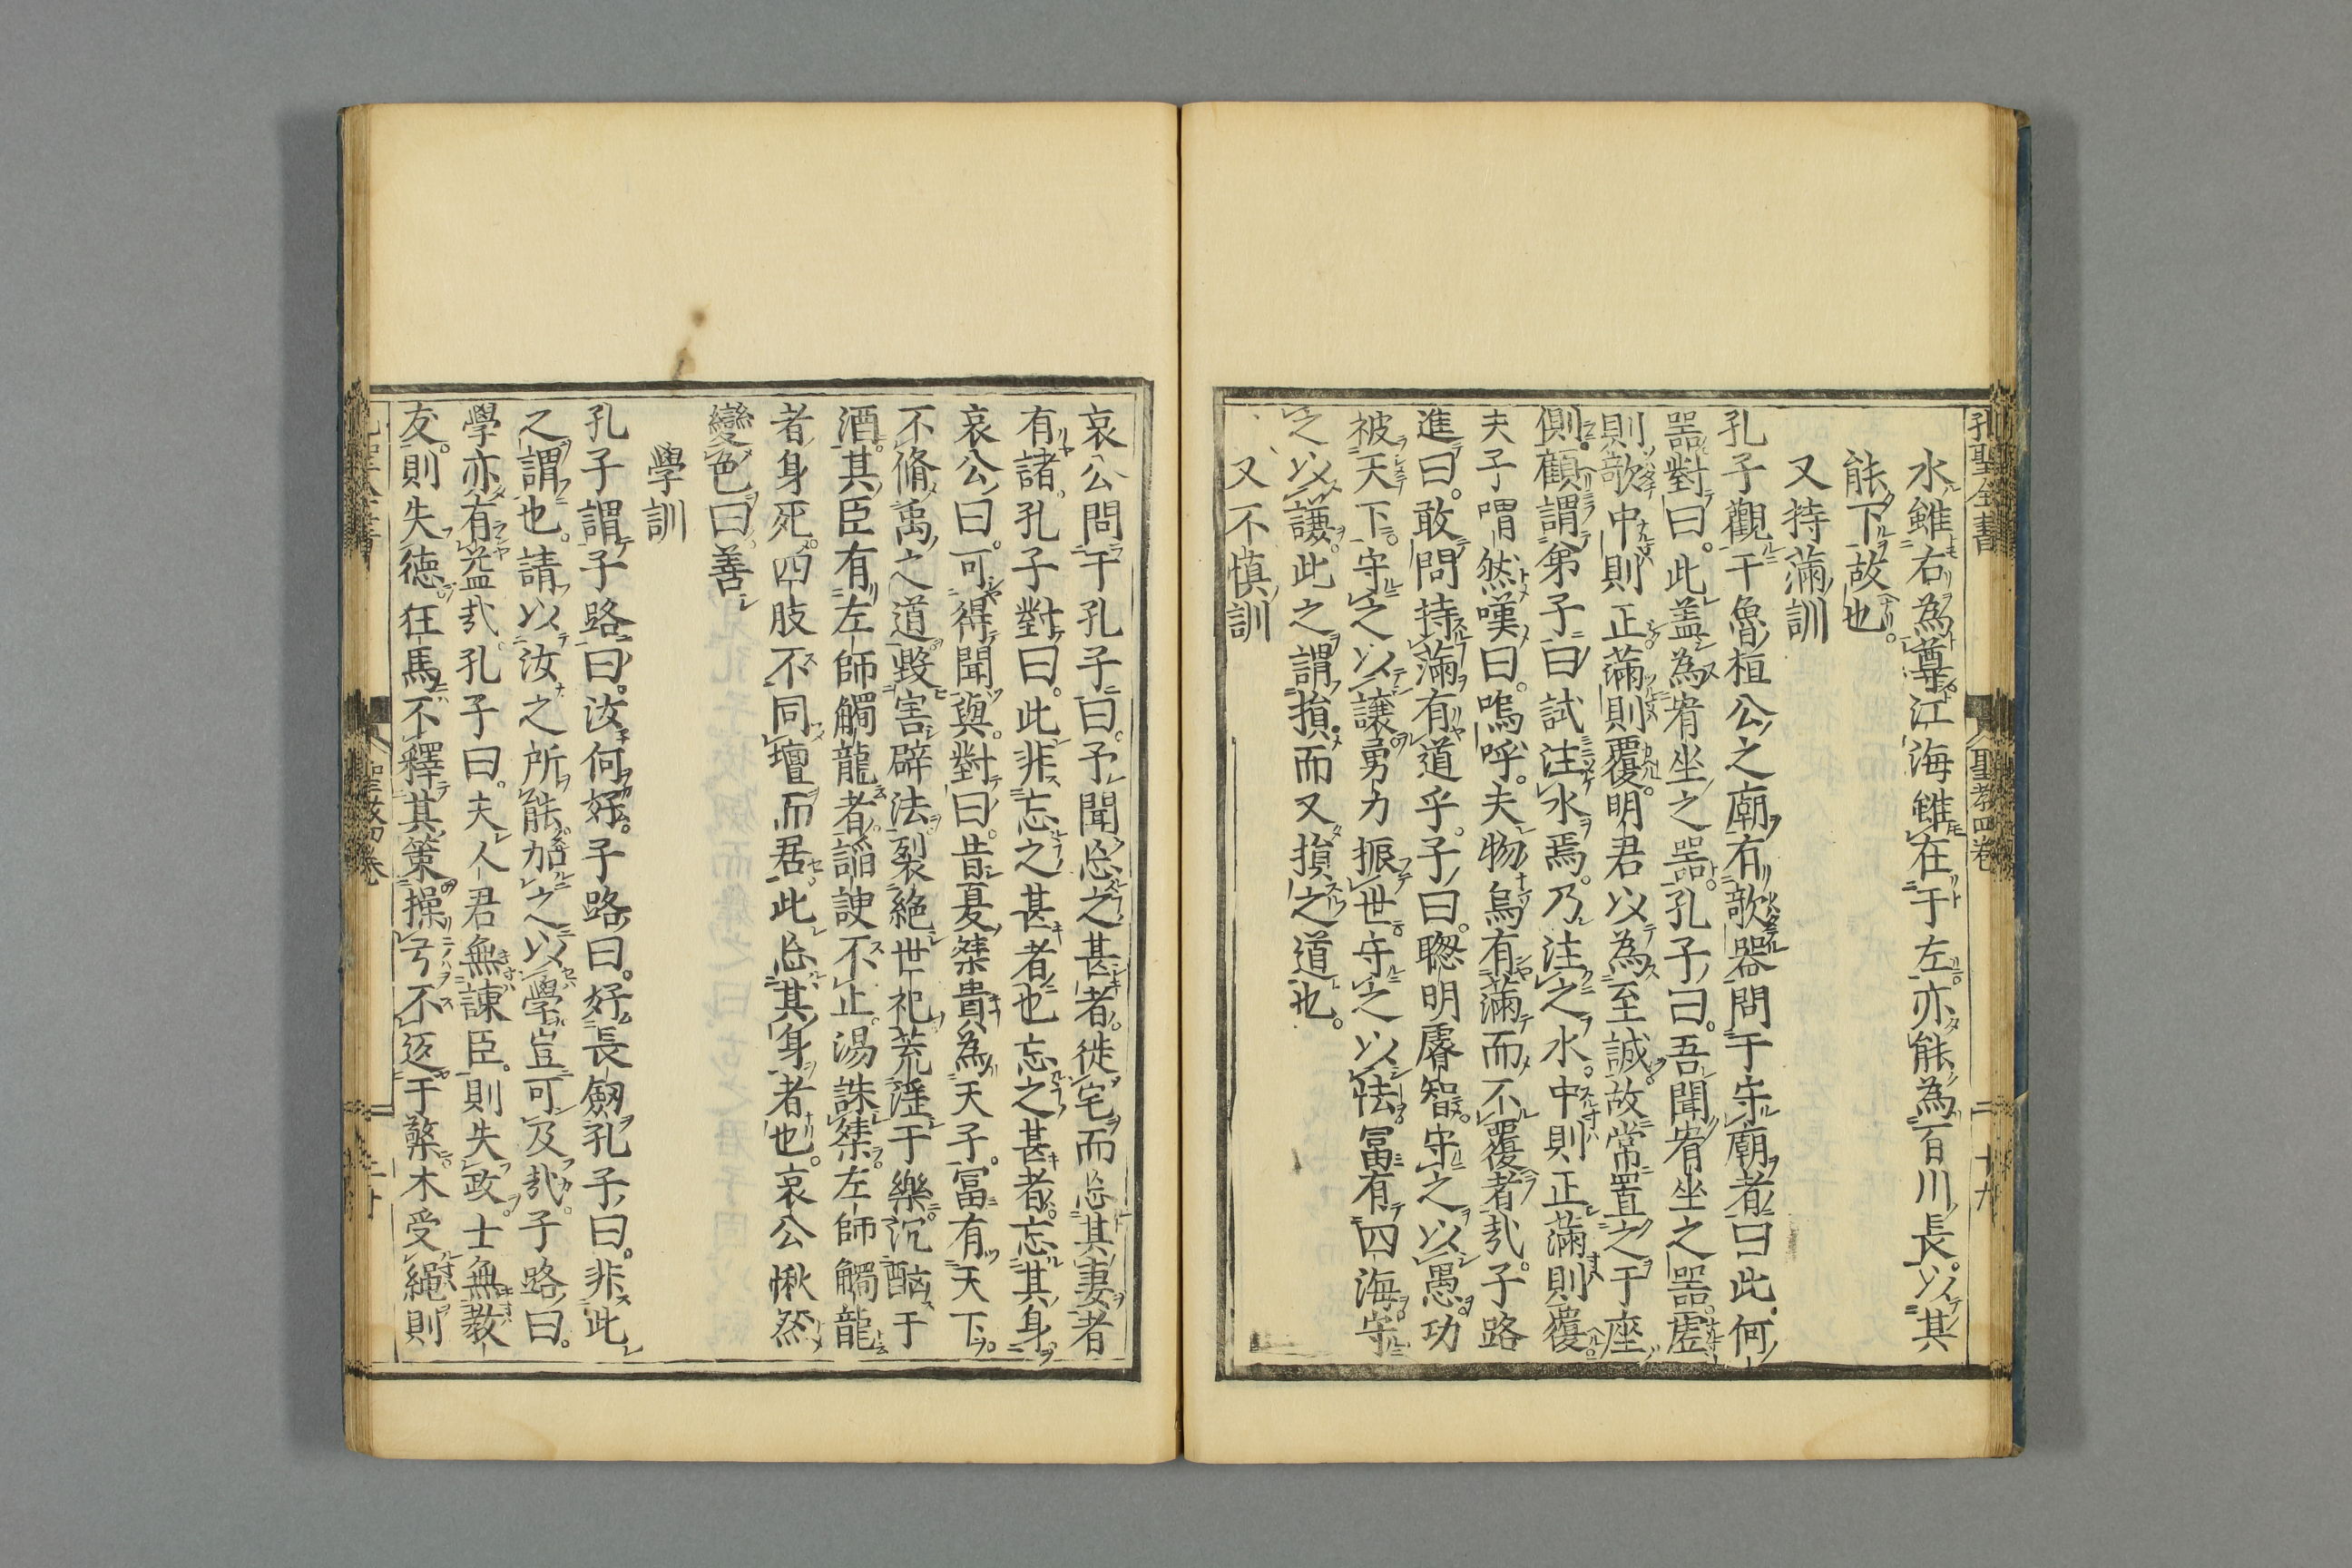 孔聖全書 聖教四卷 二十九
水雖右為尊江海雖在于左亦能為百川長以其
能下故也
又持滿訓
孔子觀于魯桓公之廟有欹器問于守廟者曰此何
噐對曰此盖為宥坐之噐孔子曰吾聞宥坐之噐虛
則欹中則正滿則覆明君以為至誠故常置之于座
側顧謂弟子曰試注水焉乃注之水中則正滿則覆
夫子喟然嘆曰嗚呼夫物烏有滿而不覆者㢤子路
進曰敢問持滿有道乎子曰聰明睿智守之以愚功
被天下守之以讓勇力振世守之以怯冨有四海守
之以謙此之謂損而又損之道也
又不慎訓
哀公問于孔子曰予聞忘之甚者徙宅而忘其妻者
有諸孔子對曰此非忘之甚者也忘之甚者忘其身
哀公曰可得聞與對曰昔夏桀貴為天子冨有天下
不脩禹之道毀害辟法裂絶世祀荒淫于樂沉酗于
酒其臣有左師觸龍者謟諛不止湯誅桀左師觸龍
者身死四肢不同壇而居此忘其身者也哀公愀然
變色曰善
學訓
孔子謂子路曰汝何好子路曰好長劔孔子曰非此
之謂也請以汝之所能加之以學豈可及㢤子路曰
學亦有益㢤孔子曰夫人君無諫臣則失政士無教
友則失德狂馬不釋其策操弓不返于檠木受繩則